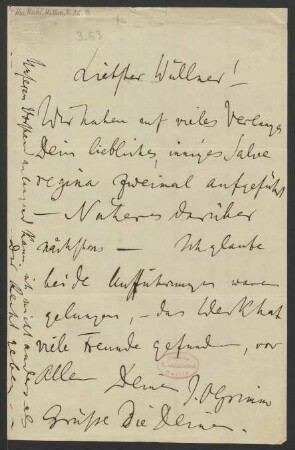 3.53
Liebster Wüllner!
Wir haben auf vieles Verlangen
Dein liebliches, inniges Salve
regina zweimal aufgeführt
– Näheres darüber
nächstens – Ich glaube
beide Aufführungen waren
gelungen, – das Werk hat
viele Freunde gefunden, vor
Allen Deinen J.O Grimm
Grüße Die Deinen.
Unseren Vorstehn anlangend kann ich nicht anders als
Dir Recht geben –